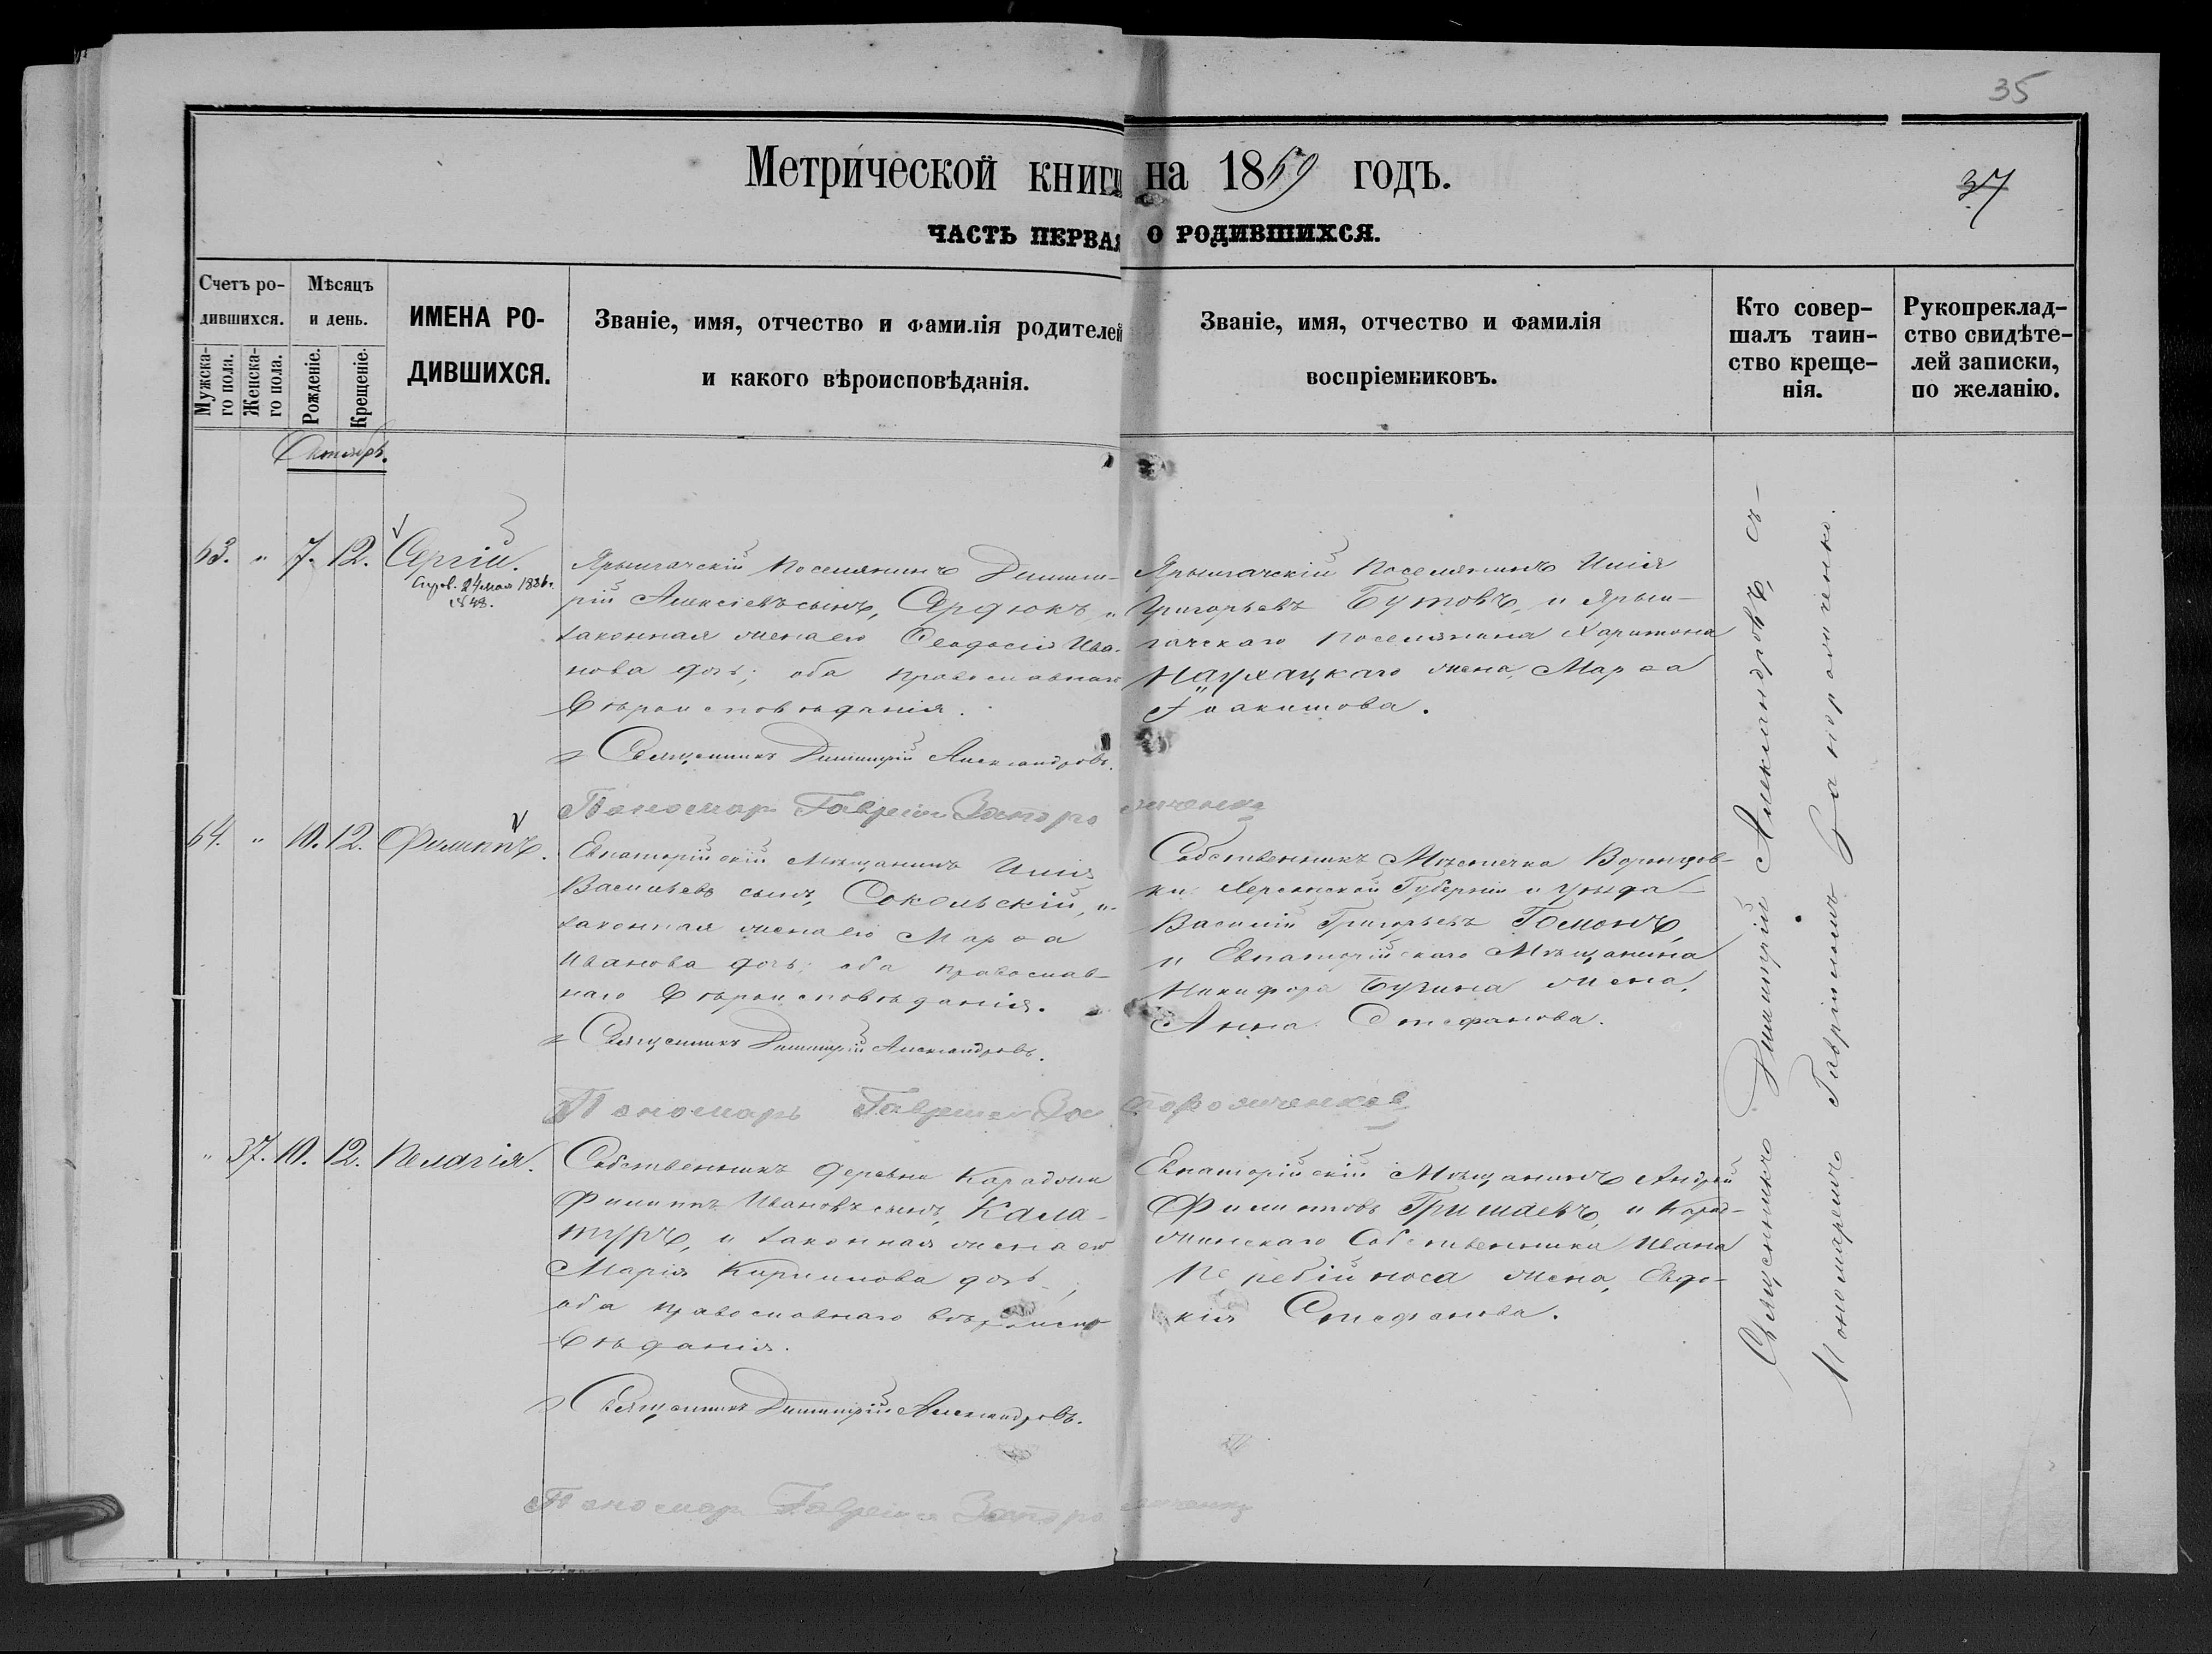 35
Метрической книги на 1869 годъ.
37
ЧАСТЬ ПЕРВАЯ О РОДИВШИХСЯ.
Счетъ родившихся.
Мужскаго пола.
Женскаго пола.
Мѣсяцъ и день.
Рожденіе.
Крещеніе.
ИМЕНА РО-
ДИВШИХСЯ.
Званіе, имя, отчество и фамилія родителей
и какого вѣроисповѣданія.
Званіе, имя, отчество и фамилія
воспріемниковъ.
Кто совер-
шалъ таин-
ство креще-
нія.
Рукоприклад-
ство свидѣте-
лей записки,
по желанію.
Октябрь.
63. " 7. 12. Сергій.
24 мая 1886 г.
Ярылгачскій поселянинъ Димит-
рій Алексіевъ сынъ, Сердюкъ, и
законная жена его Ѳеодосія Ива-
нова дочь; оба православнаго
вѣроисповѣданія.
Священникъ Димитрій Александровъ.
Пономарь Гавріилъ Запорожченко
Ярылгачскій поселянинъ Илія
Григорьевъ Бутовъ, и Ярыл-
гачскаго поселянина Харитона
жена, Марѳа
Іоакимова.
64. " 10. 12. Филиппъ.
Евпаторійскій мѣщанинъ Илія
Васильевъ сынъ, Сокольскій, и
законная жена его Марѳа
Иванова дочь; оба православ-
наго вѣроисповѣданія.
Священникъ Димитрій Александровъ.
Пономарь Гавріилъ Запорожченко
Собственникъ Мѣстечка Воронцов-
ки Херсонской Губерніи и уѣзда
Василій Григорьевъ Гомонъ,
и Евпаторійскаго Мѣщанина
Никифора Бугина жена,
Анна Стефанова.
" 37. 10. 12. Пелагія.
Собственникъ деревни Караджи
Филиппъ Ивановъ сынъ, Кала-
туръ, и законная жена его
Марія Кириллова дочь;
оба православнаго вѣроиспо-
вѣданія.
Священникъ Димитрій Александровъ.
Пономарь Гавріилъ Запорожченко
Евпаторійскій Мѣщанинъ Андрей
Филиповъ Гришаевъ, и Карад-
жинскаго Собственника Ивана
Перебійноса жена, Евдо-
кія Стефанова.
Священникъ Димитрій Александровъ, съ
Пономаремъ Гавріиломъ Запорожченко.